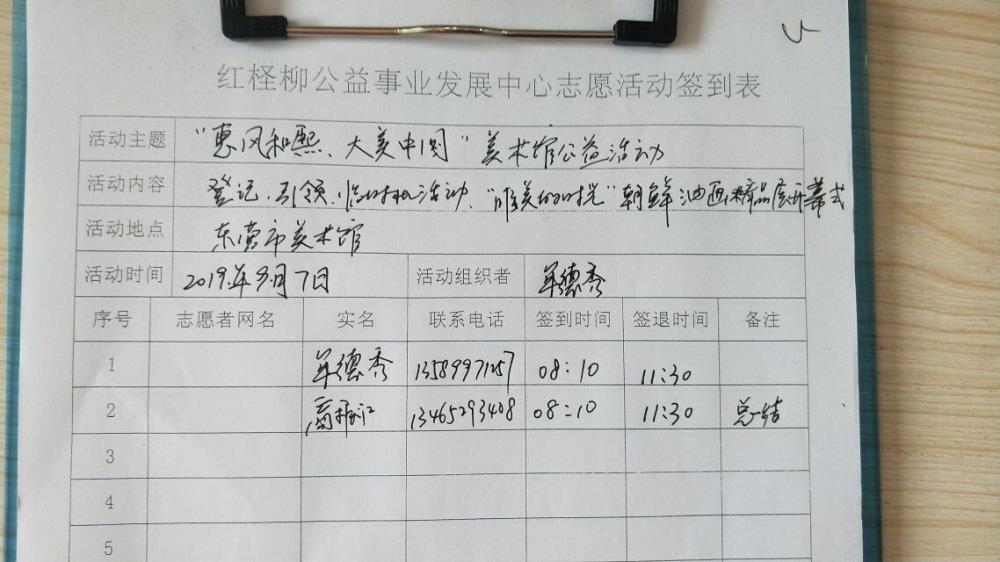 红柽柳公益事业发展中心志愿活动签到表
活动主题 "惠风和熙、大美中国"美术馆公益活动
活动内容 登记、引领、临时机活动、"唯美的时光"朝鲜油画精品展开幕式
活动地点 东营市美术馆
活动时间 2019年9月7日 活动组织者 单德秀
序号 志愿者网名 实名 联系电话 签到时间 签退时间 备注
1 单德秀 13589971257 08:10 11:30
2 高振江 13465293408 08:10 11:30 总结
3
4
5